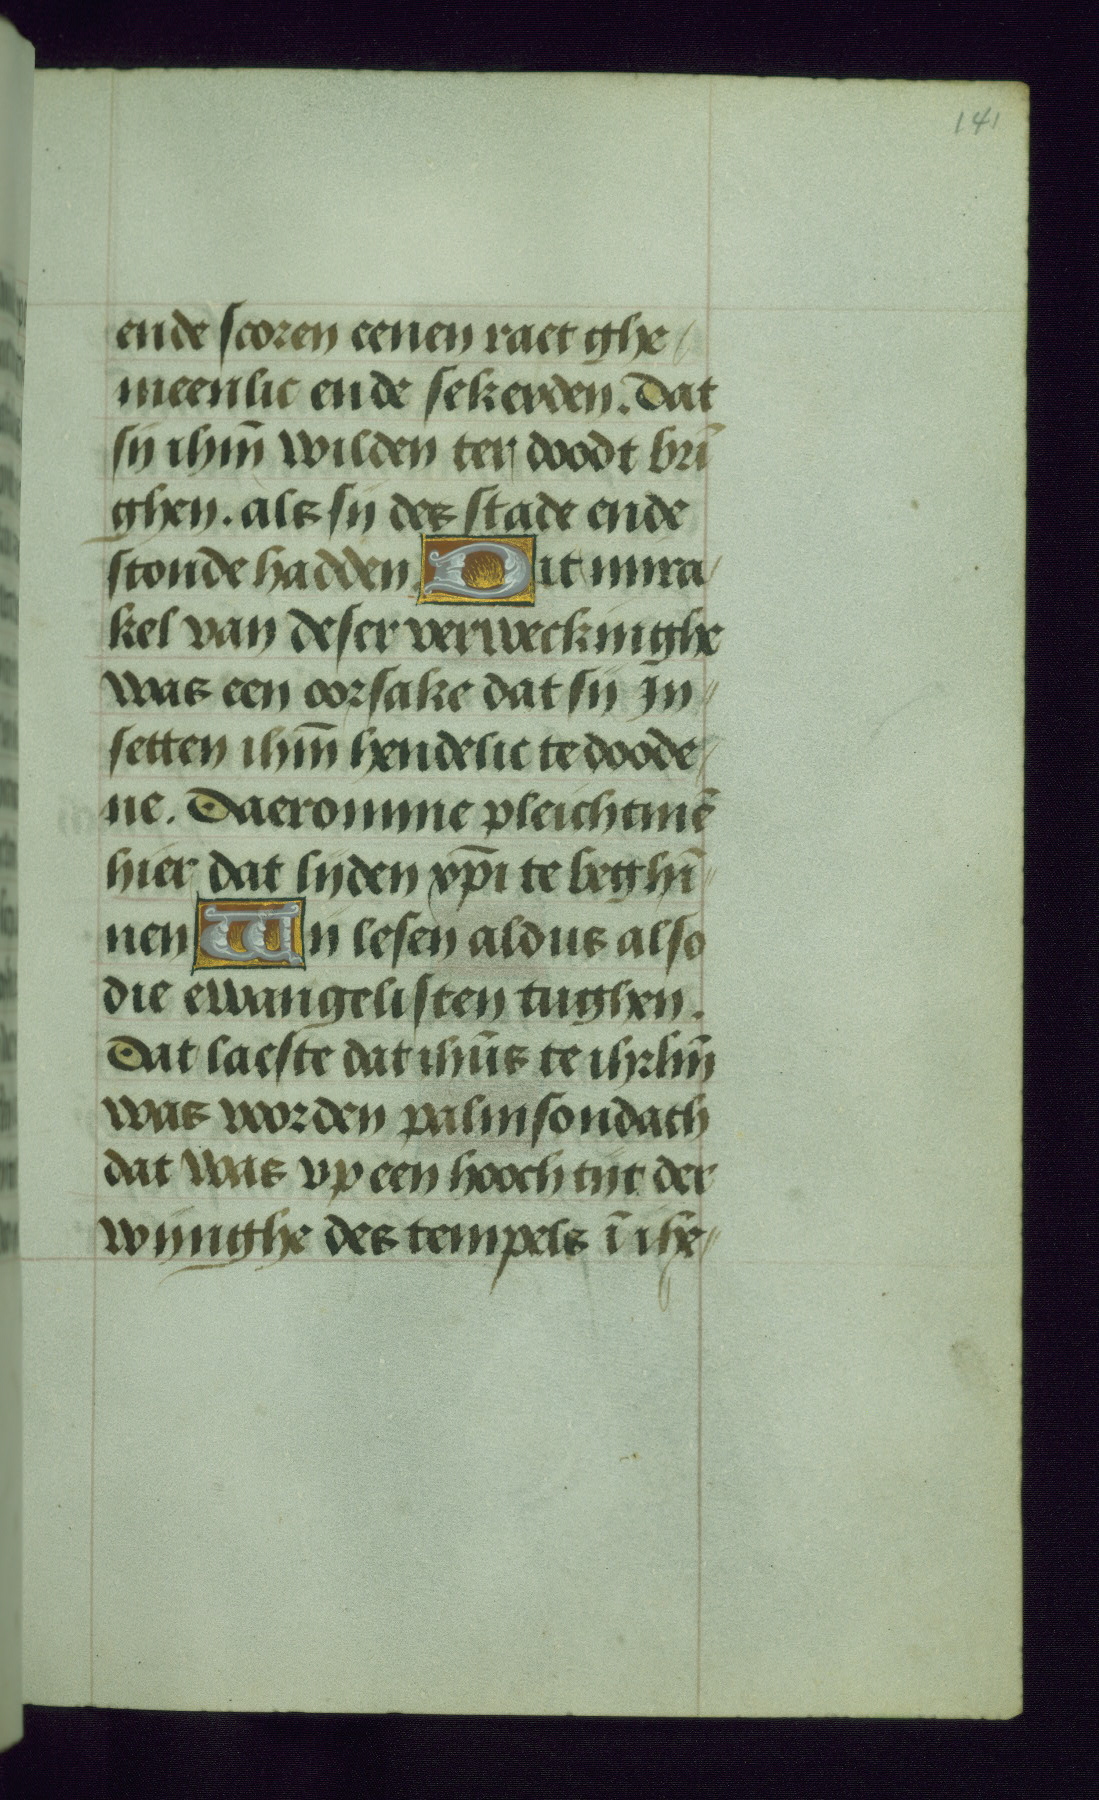 141
ende scoren eenen raet ghe
meenlic ende sekerden. Dat
sij ihm̄ wilden ter doodt brī
ghen. als sij des stade ende
stonde hadden. Dit mira
kel van deser verweckinghe
was een oorsake dat sij In
setten ihm̄ hendelic te doode
ne. Daeromme pleichtmē
hier dat lijden xp̄i te beghī
nen Wij lesen aldus also
die ewangelisten tughen.
Dat laeste dat ihūs te ihrlm̄
was voor den palmsondach
dat was vp een hooch tijt der
wijnghe des tempels ī ihe